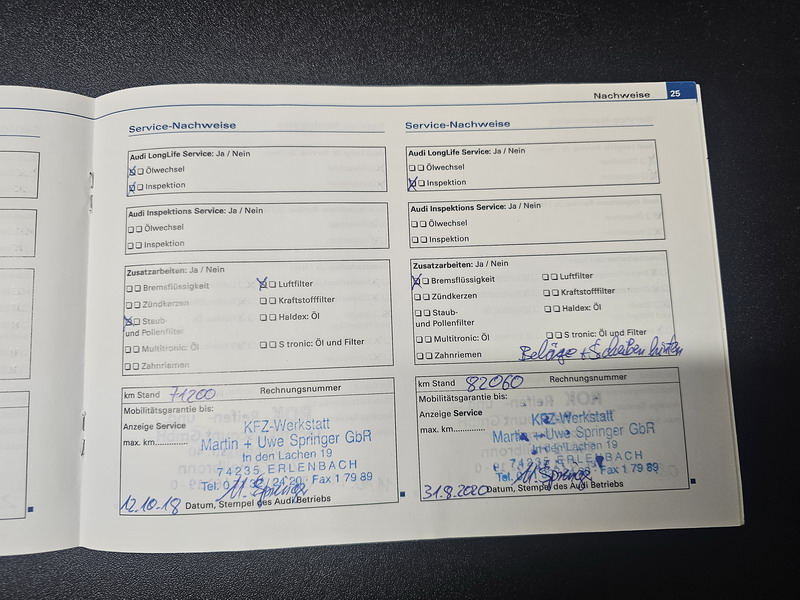 Nachweise 25
Service-Nachweise
Audi LongLife Service: Ja / Nein
Ölwechsel
Inspektion
Audi Inspektions Service: Ja / Nein
Ölwechsel
Inspektion
Zusatzarbeiten: Ja / Nein
Bremsflüssigkeit
Luftfilter
Zündkerzen
Kraftstofffilter
Staub-
und Pollenfilter
Haldex: Öl
Multitronic: Öl
S tronic: Öl und Filter
Zahnriemen
km Stand 71200 Rechnungsnummer
Mobilitätsgarantie bis:
Anzeige Service
max. km............
KFZ-Werkstatt
Martin + Uwe Springer GbR
In den Lachen 19
74235 ERLENBACH
Fax 1 79 89
M. Springer
12.10.18 Datum, Stempel des Audi Betriebs
Service-Nachweise
Audi LongLife Service: Ja / Nein
Ölwechsel
Inspektion
Audi Inspektions Service: Ja / Nein
Ölwechsel
Inspektion
Zusatzarbeiten: Ja / Nein
Bremsflüssigkeit
Luftfilter
Zündkerzen
Kraftstofffilter
Staub-
und Pollenfilter
Haldex: Öl
Multitronic: Öl
S tronic: Öl und Filter
Zahnriemen
Beläge + Scheiben hinten
km Stand 82060 Rechnungsnummer
Mobilitätsgarantie bis:
Anzeige Service
max. km............
KFZ-Werkstatt
Martin + Uwe Springer GbR
In den Lachen 19
74235 ERLENBACH
Fax 1 79 89
M. Springer
31.8.2020 Datum, Stempel des Audi Betriebs